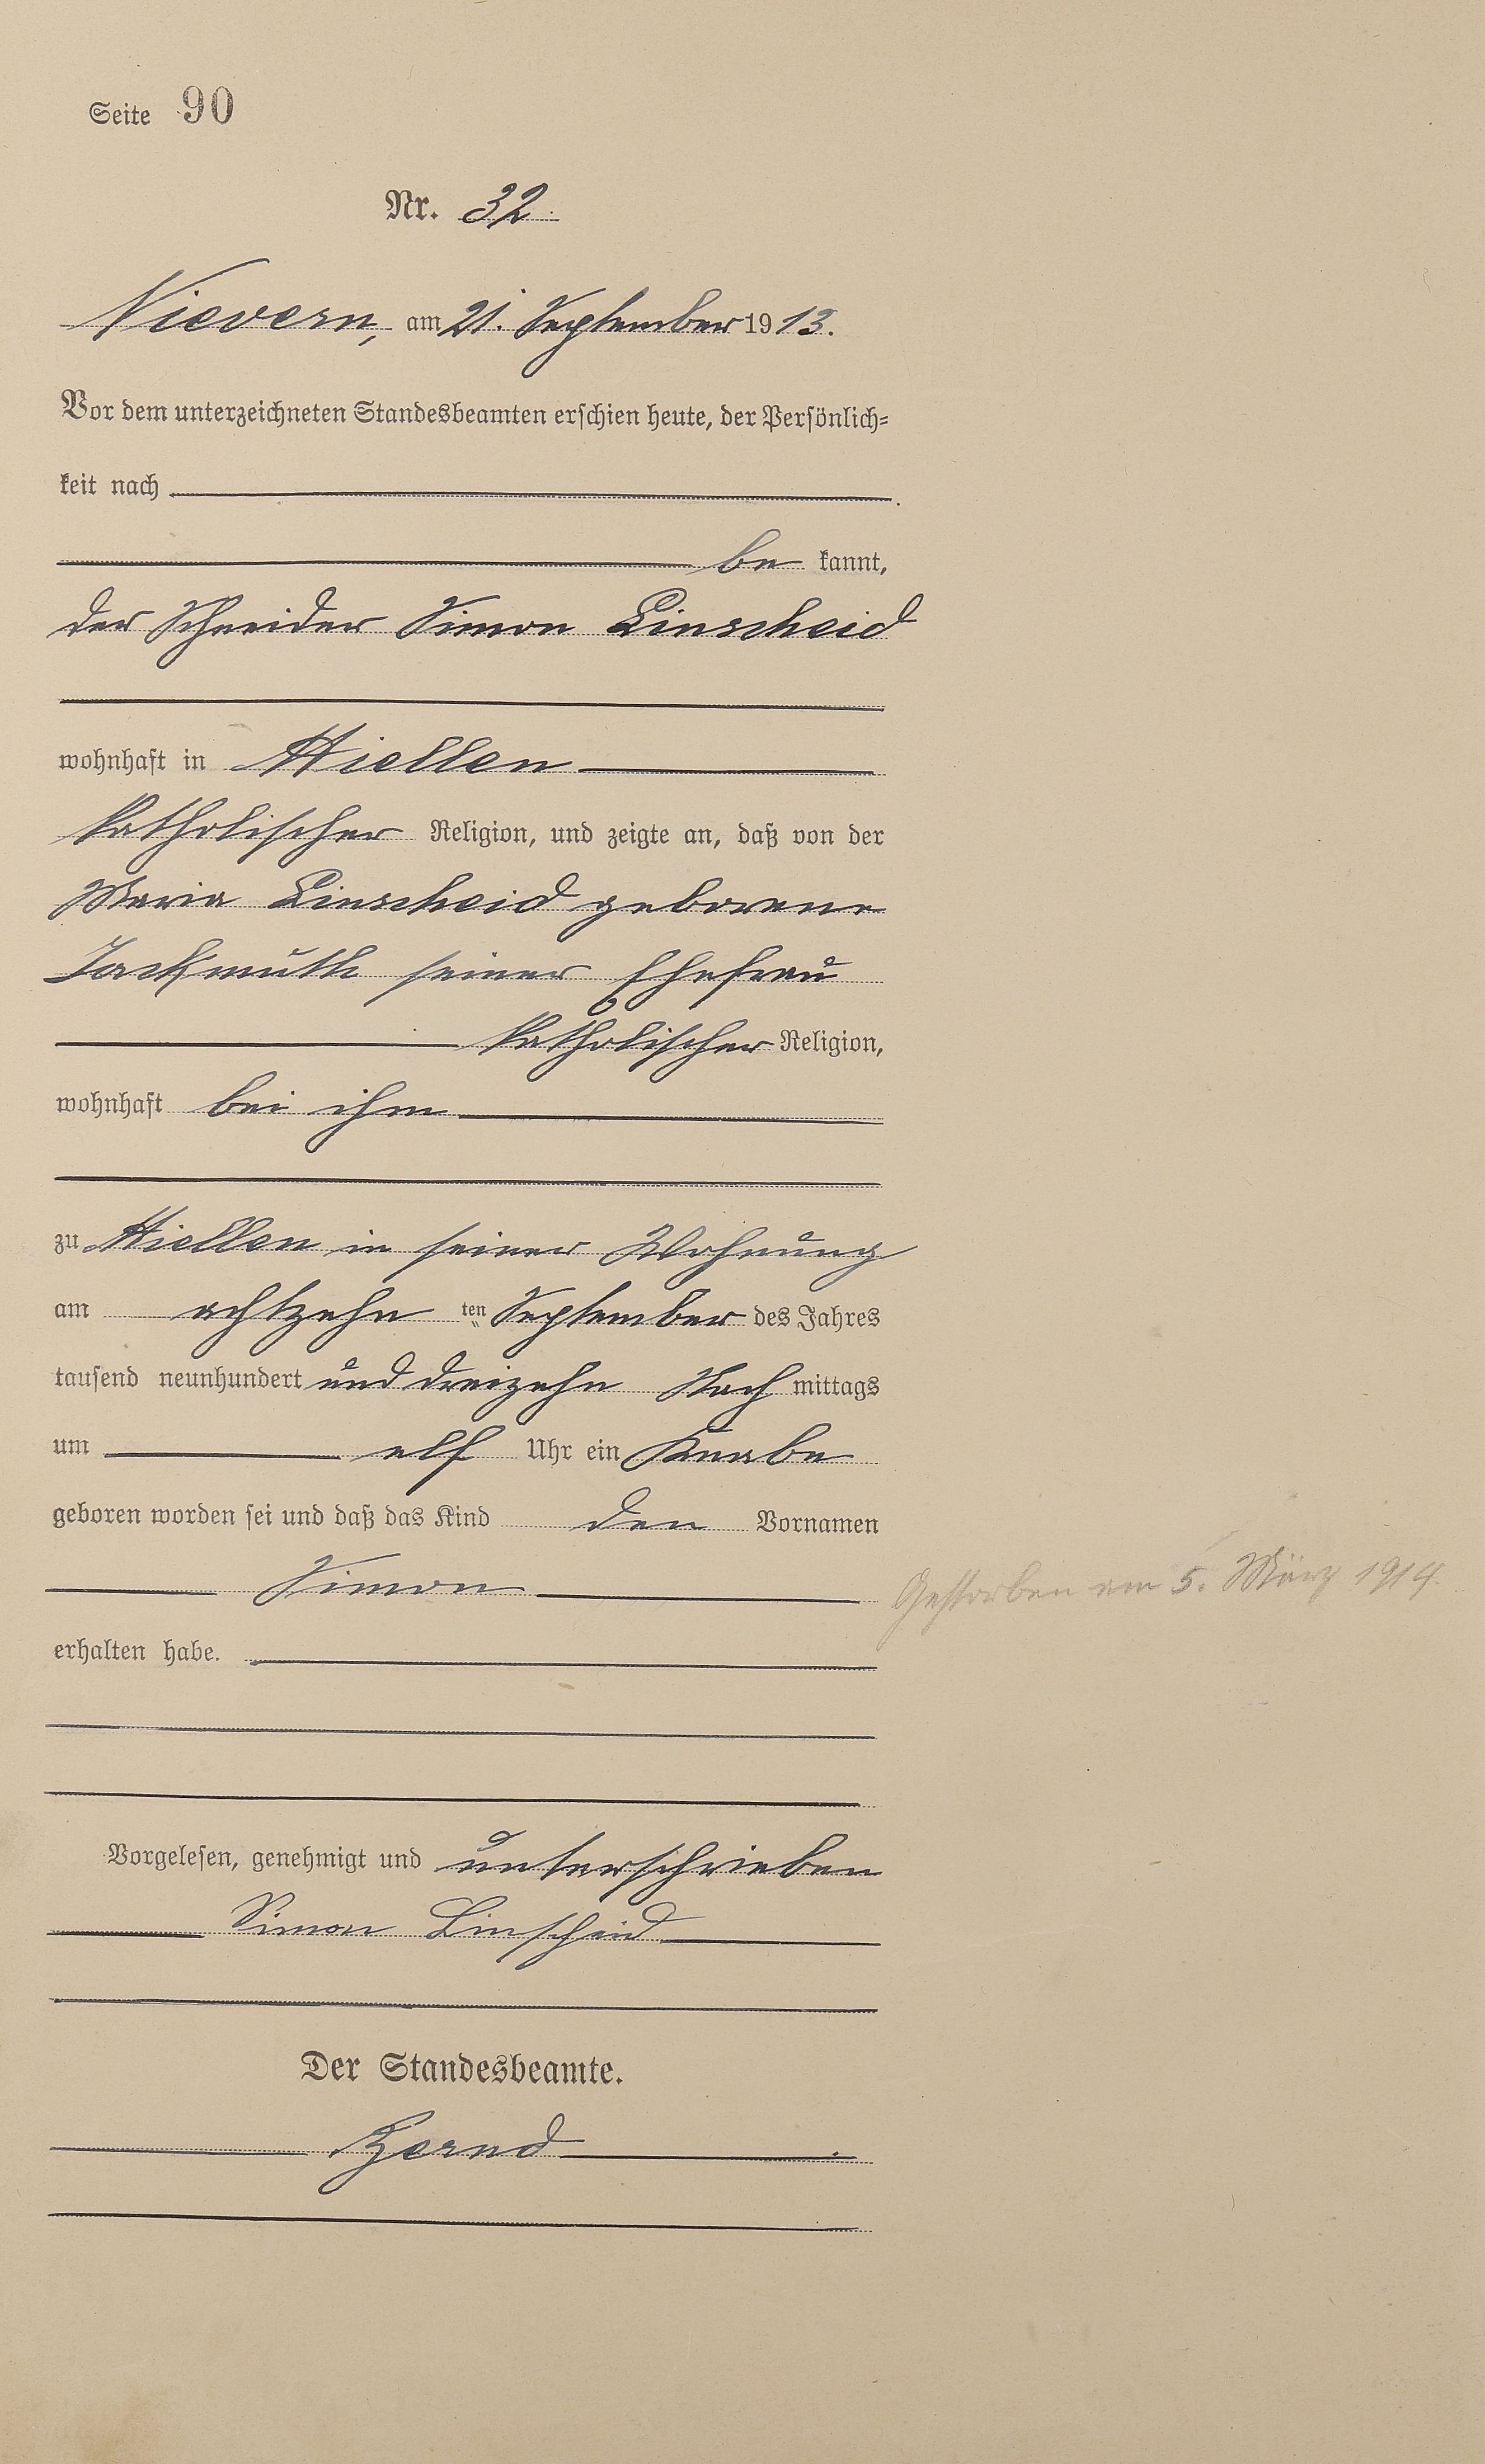 Seite 90
Nr. 32.
Nievern, am 21. September 1913.
Vor dem unterzeichneten Standesbeamten erschien heute, der Persönlich-
keit nach
be kannt,
der Schneider Simon Linscheid
wohnhaft in Miellen
katholischer Religion, und zeigte an, daß von der
Maria Linscheid geborene
Jackmuth seiner Ehefrau
katholischer Religion,
wohnhaft bei ihm
zu Miellen in seiner Wohnung
am achtzehn ten September des Jahres
tausend neunhundert und dreizehn Nach mittags
um elf Uhr ein Knabe
geboren worden sei und daß das Kind den Vornamen
Simon
Gestorben am 5. März 1914.
erhalten habe.
Vorgelesen, genehmigt und unterschrieben
Simon Linscheid
Der Standesbeamte.